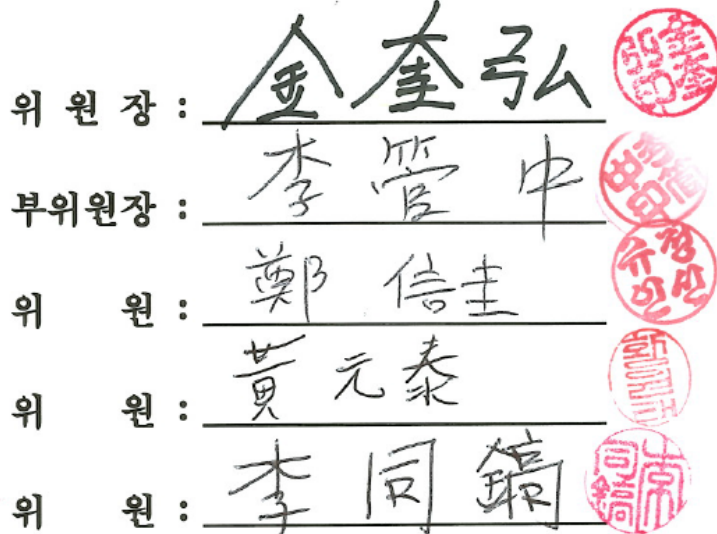 위 원 장 : 金奎弘
부위원장 : 李管中
위 원 : 鄭信圭
위 원 : 黃元泰
위 원 : 李同鎬